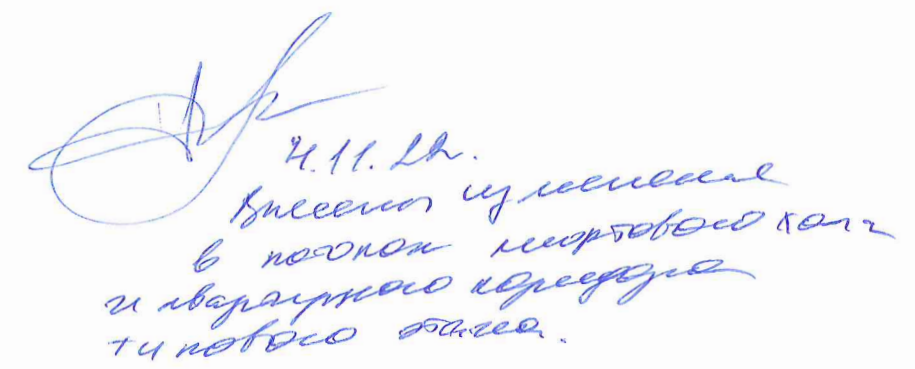 4.11.22.
Внесены изменения
в потолок лифтового холла
и квартирного коридора
типового этажа.